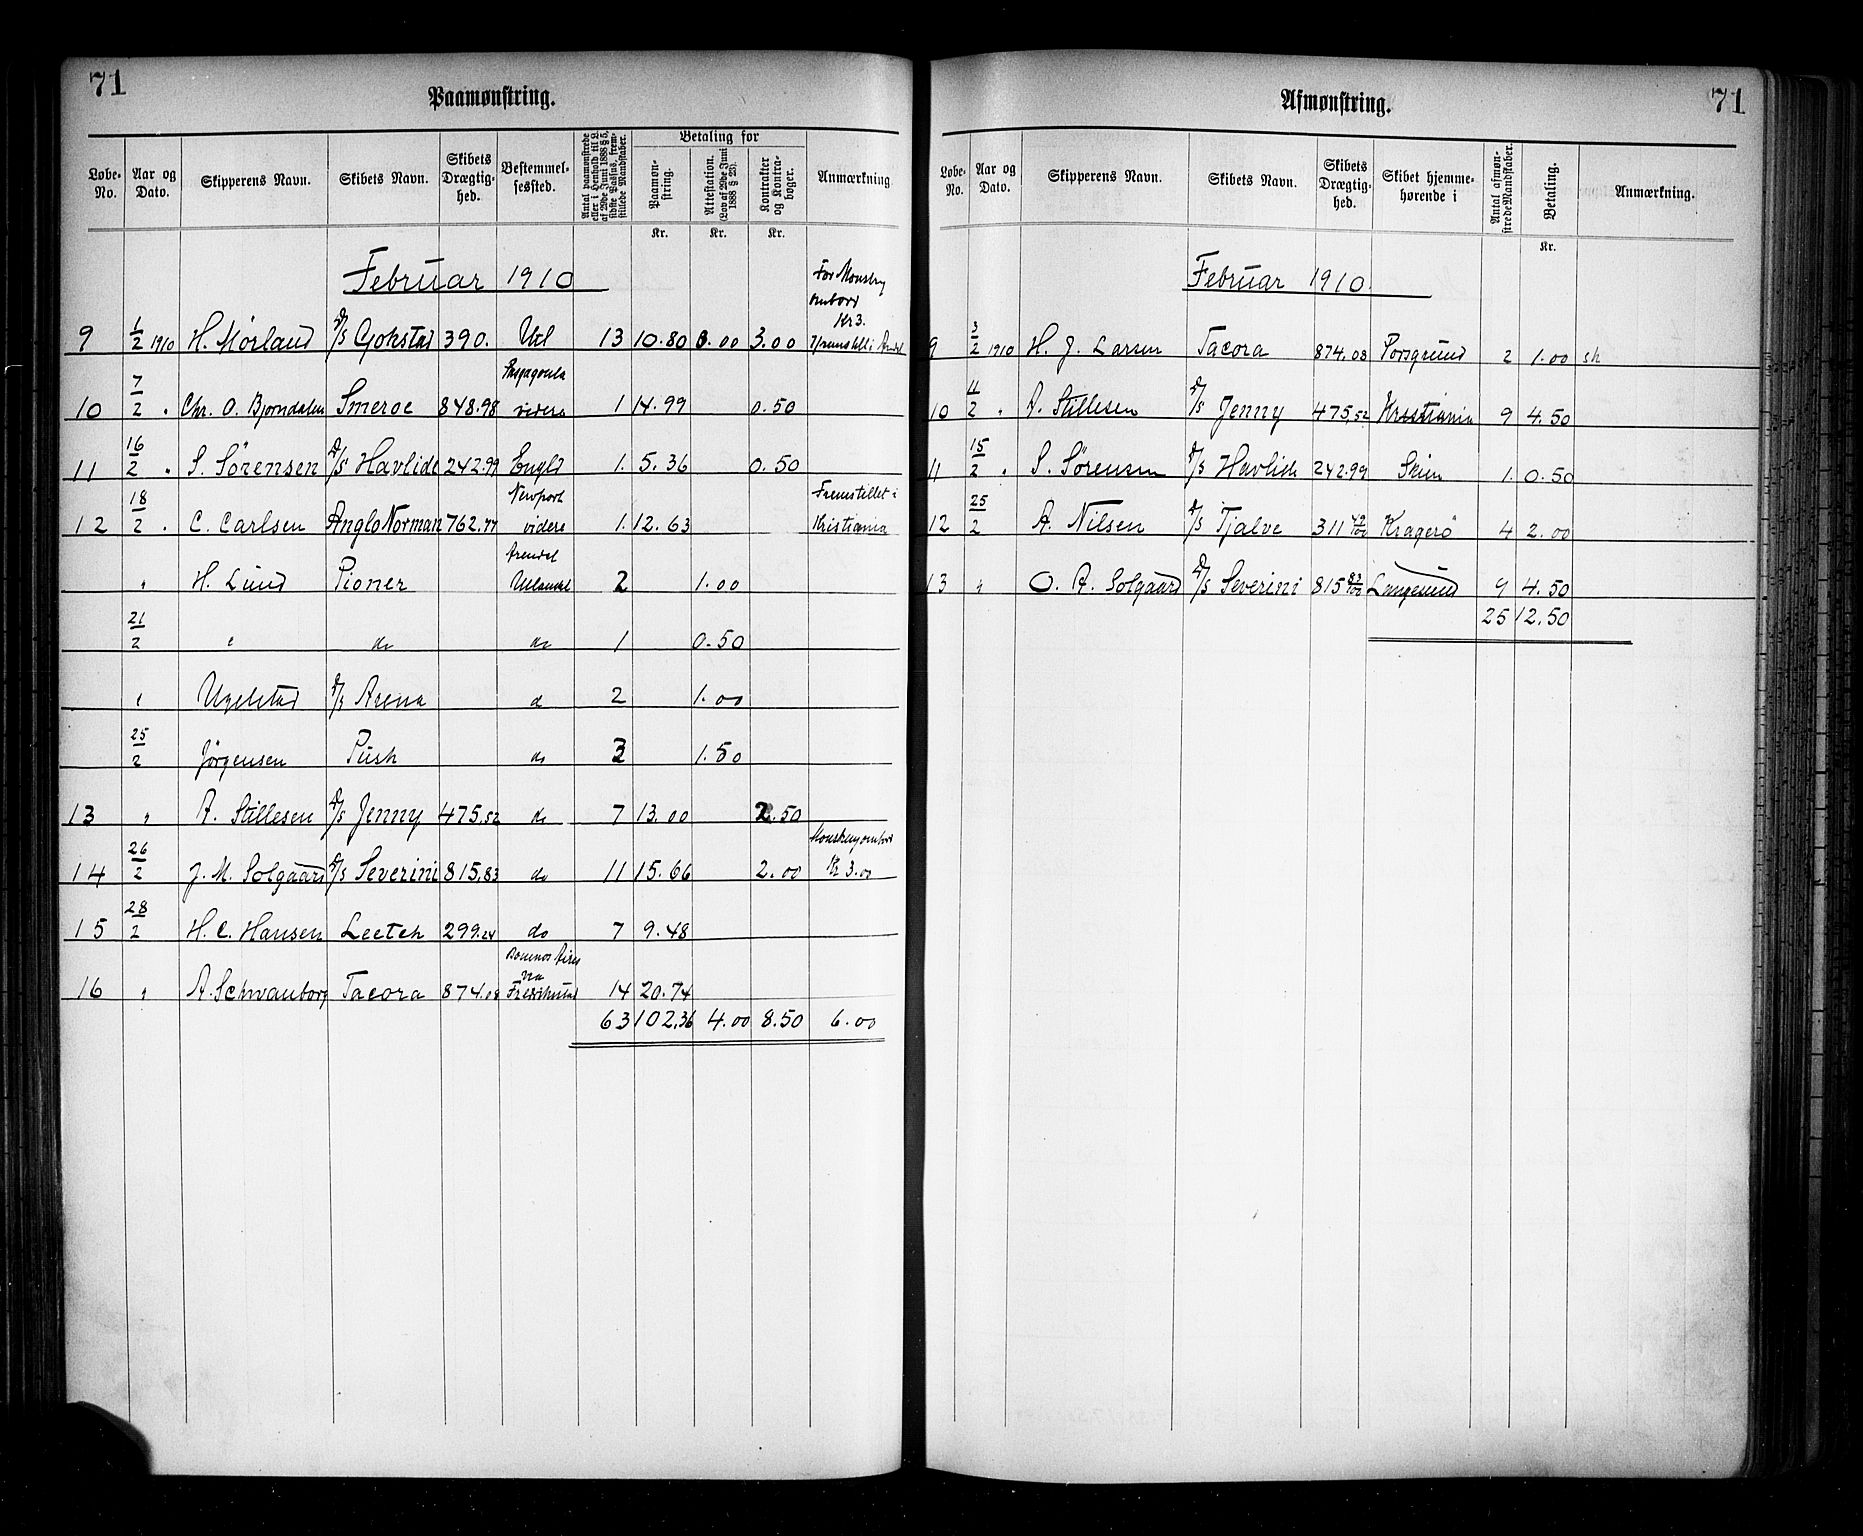 71
Paamønstring.
Løbe-No. Aar og Dato. Skipperens Navn. Skibets Navn. Skibets Drægtig-hed. Bestemmel-sessted. Antal paamønstrede eller i Henhold til L. af 29de Juni 1888 § 5, sidste Passus, frem-stillede Mandskaber. Betaling for Paamøn-string. Attestation. (Lov af 29de Juni 1888 § 23). Kontrakter og Kontra-bøger. Anmærkning
Kr. Kr. Kr.
Februar 1910
For Monstring ombord Kr 3.
9 1/2 1910 H. Mörland D/S Gokstad 390. Utl 13 10.80 0.00 3.00
10 7/2 " Chr. O. Bjørndalen Smeroe 848.98 videre 1 14.99 0.50
11 16/2 " S. Sörensen D/S Havlide 242.99 Engld 1. 5.36 0.50
12 18/2 " C. Carlsen Anglo Norman 762.77 Newport videre 1. 12.63 Fremstillet i Kristiania
" H. Lund Pioner Arendal Utlandet 2 1.00
21/2 " do do 1 0.50
" Ugelstad D/S Arena d 2 1.00
25/2 Jørgensen Push do 3 1.50
13 " A. Stillesen D/S Jenny 475.52 do 7 13.00 2.50
14 26/2 J. M. Solgaard D/S Severini 815.83 do 11 15.66 2.00 Monstring ombord Kr 3.00
15 28/2 H. C. Hansen Leetch 299.24 do 7 9.48
16 " A. Schwanborg Tacora 874.08 Buenos Aires via Fredrikstad 14 20.74
63 102,36 4.00 8.50 6.00
71
Afmønstring.
Løbe-No. Aar og Dato. Skipperens Navn. Skibets Navn. Skibets Drægtig-hed. Skibet hjemme-hørende i Antal afmøn-strede Mandskaber. Betaling. Anmærkning.
Kr.
Februar 1910.
9 3/2 1910 H. J. Larsen Tacora 874.08 Porsgrund 2 1.00 sk
10 11/2 " A. Stillesen D/S Jenny 475,52 Kristiania 9 4.50
11 15/2 " S. Sørensen D/S Havlide 242.99 Skien 1. 0.50
12 25/2 A. Nilsen D/S Tjalve 311 49/100 Kragerö 4 2.00
13 " O. A. Solgaard D/S Severini 815 83/100 Langesund 9 4.50
25 12.50